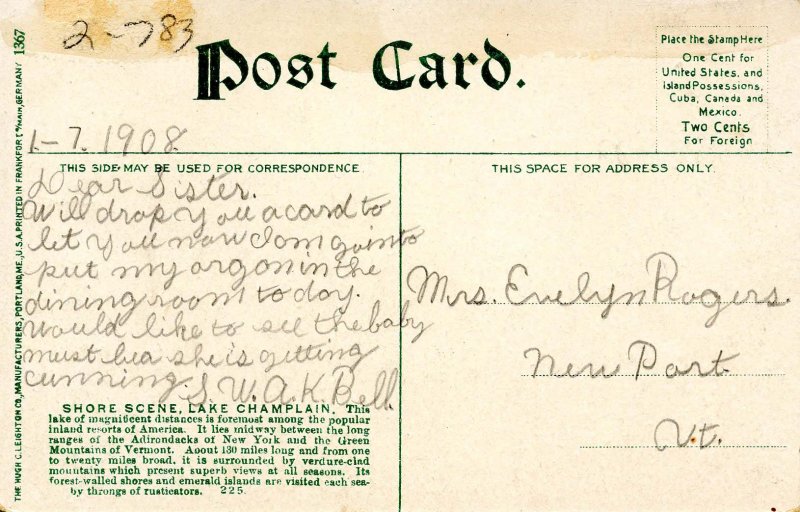 1367
2-783
Post Card.
Place the Stamp Here
One Cent for
United States, and
Island Possessions,
Cuba, Canada and
Mexico.
Two Cents
For Foreign
THE HUGH C. LEIGHTON CO., MANUFACTURERS, PORTLAND, ME., U.S.A. PRINTED IN FRANKFORT o/MAIN, GERMANY
1-7. 1908
THIS SIDE MAY BE USED FOR CORRESPONDENCE.
Dear Sister.
Will drop you a card to
let you now I am goin to
put my orgon in the
dining room to day.
Would like to see the baby
must bea she is getting
cunning. S. W. A. K. Bell.
SHORE SCENE, LAKE CHAMPLAIN. This
lake of magnificent distances is foremost among the popular
inland resorts of America. It lies midway between the long
ranges of the Adirondacks of New York and the Green
Mountains of Vermont. About 130 miles long and from one
to twenty miles broad, it is surrounded by verdure-clad
mountains which present superb views at all seasons. Its
forest-walled shores and emerald islands are visited each sea-
by throngs of rusticators. 225.
THIS SPACE FOR ADDRESS ONLY.
Mrs. Evelyn Rogers.
New Port
Vt.